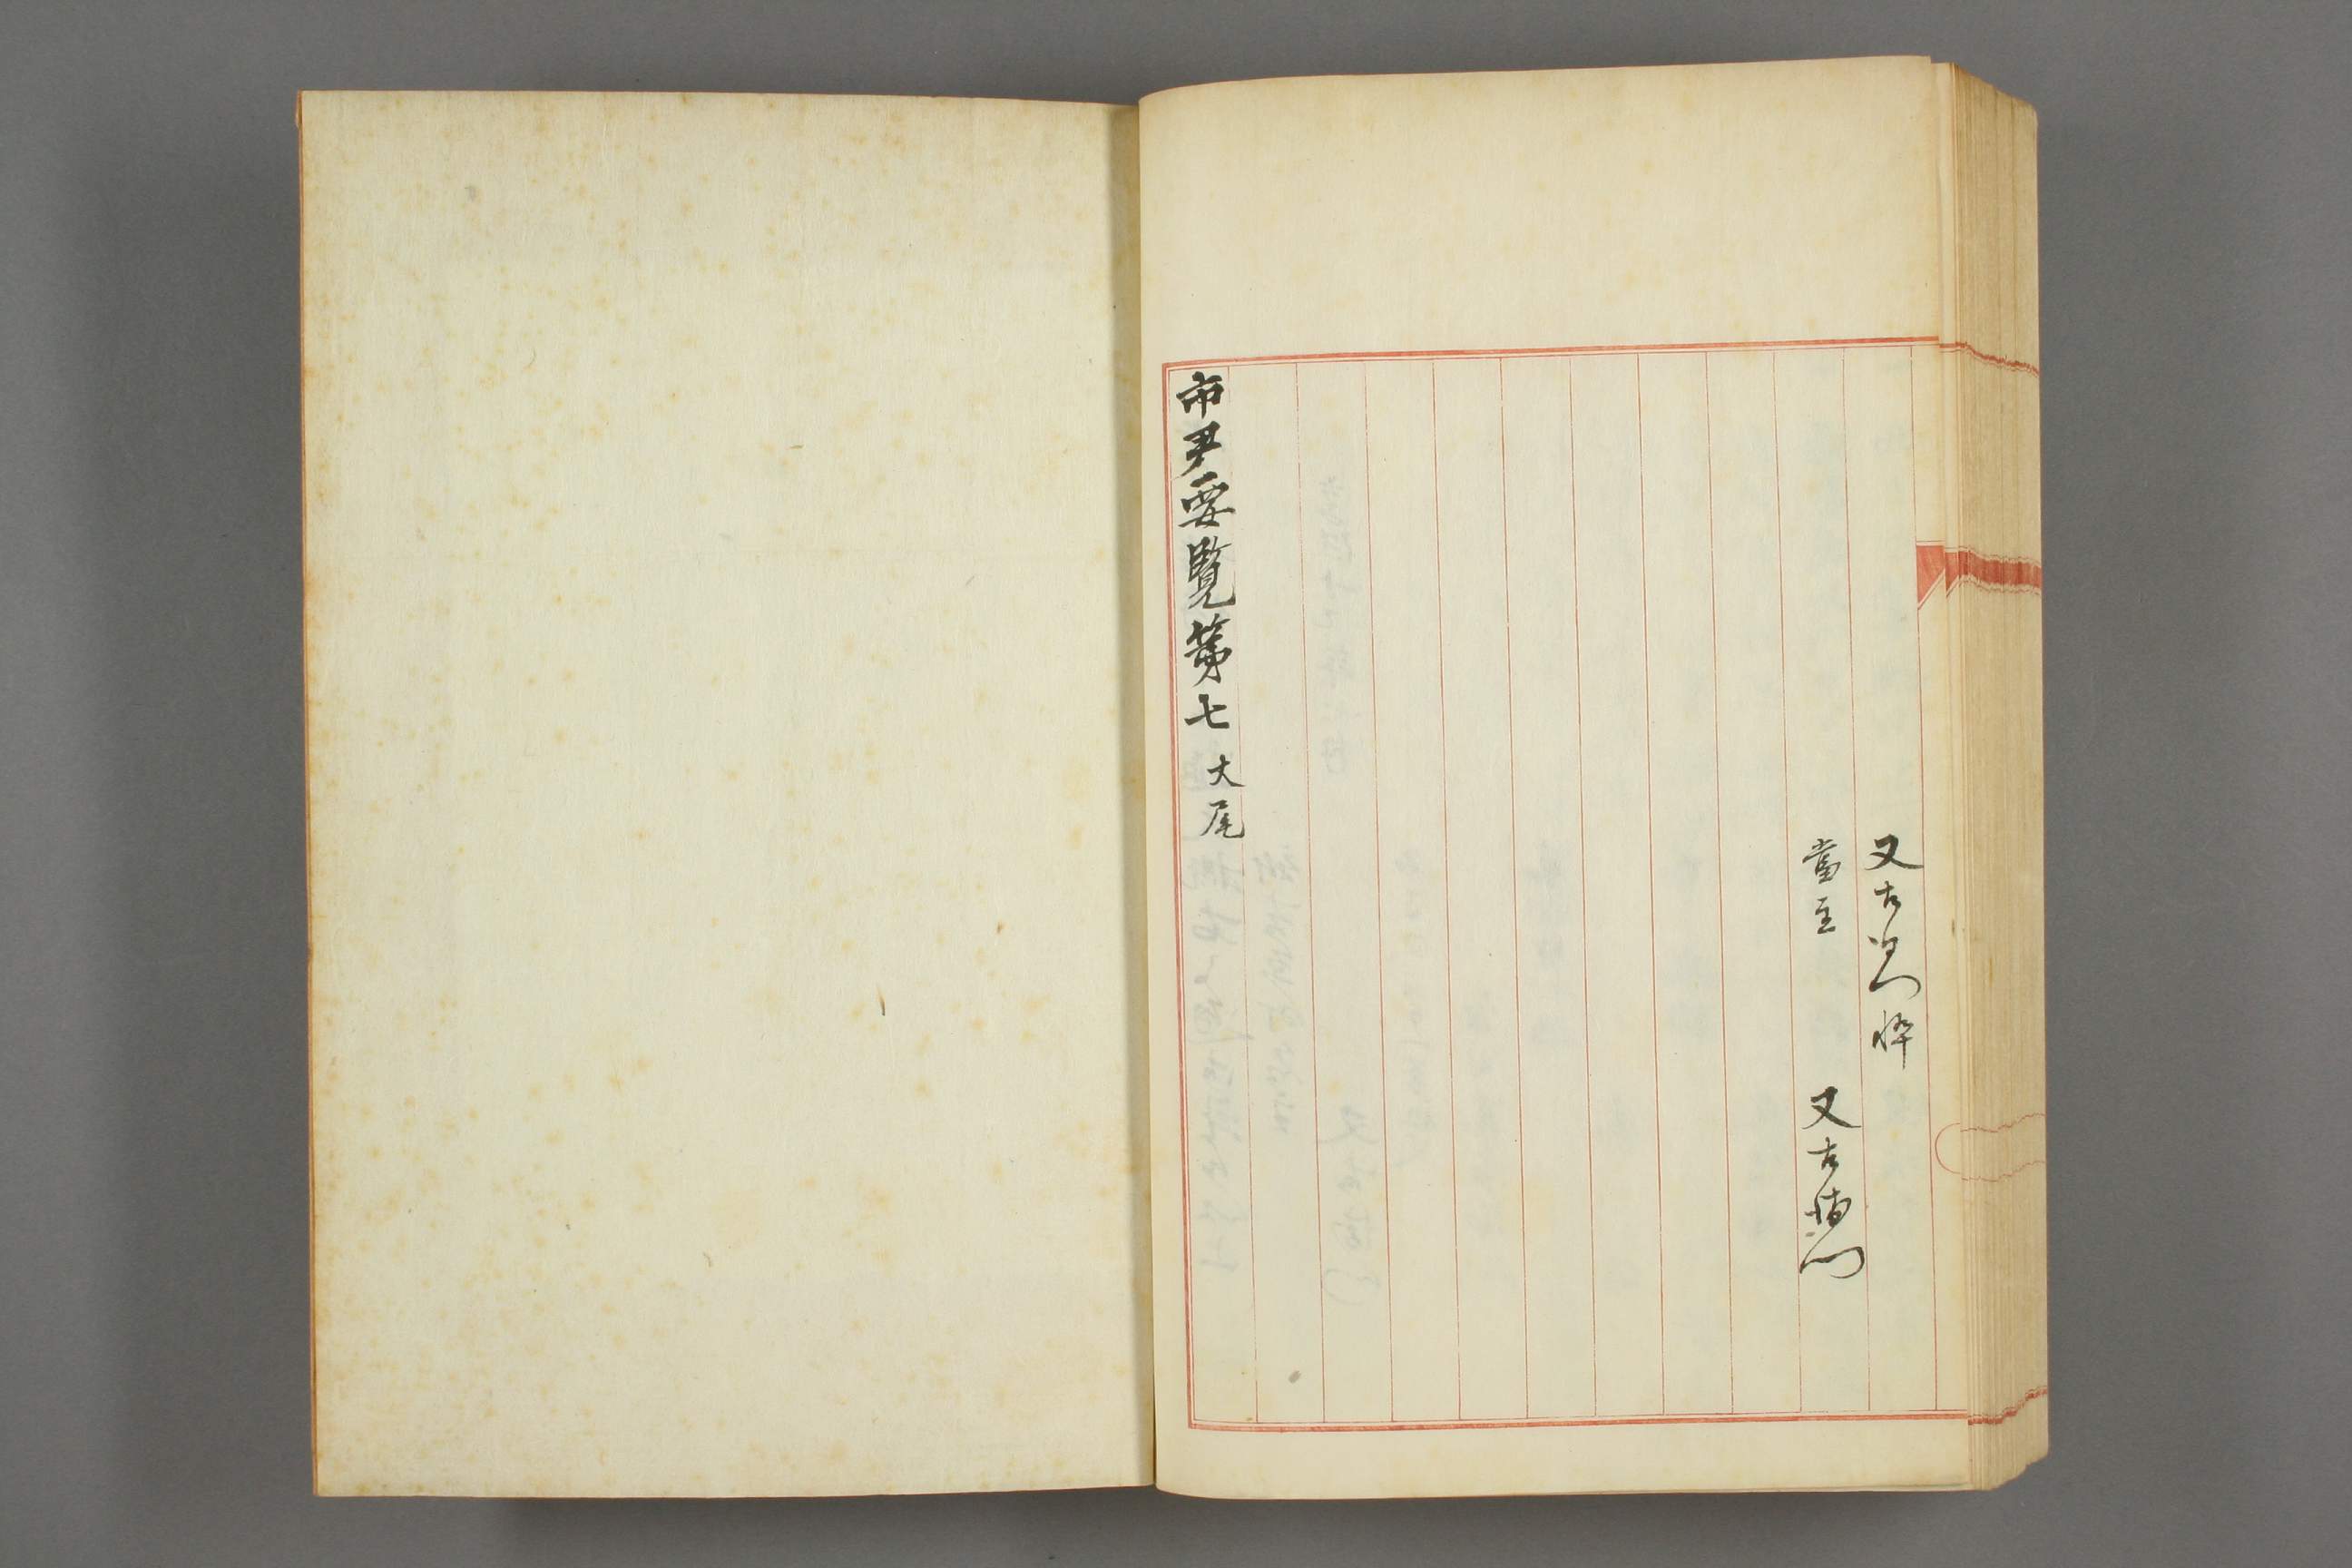 又右衛門忰
當主
又右衛門
市尹要覧第七 大尾